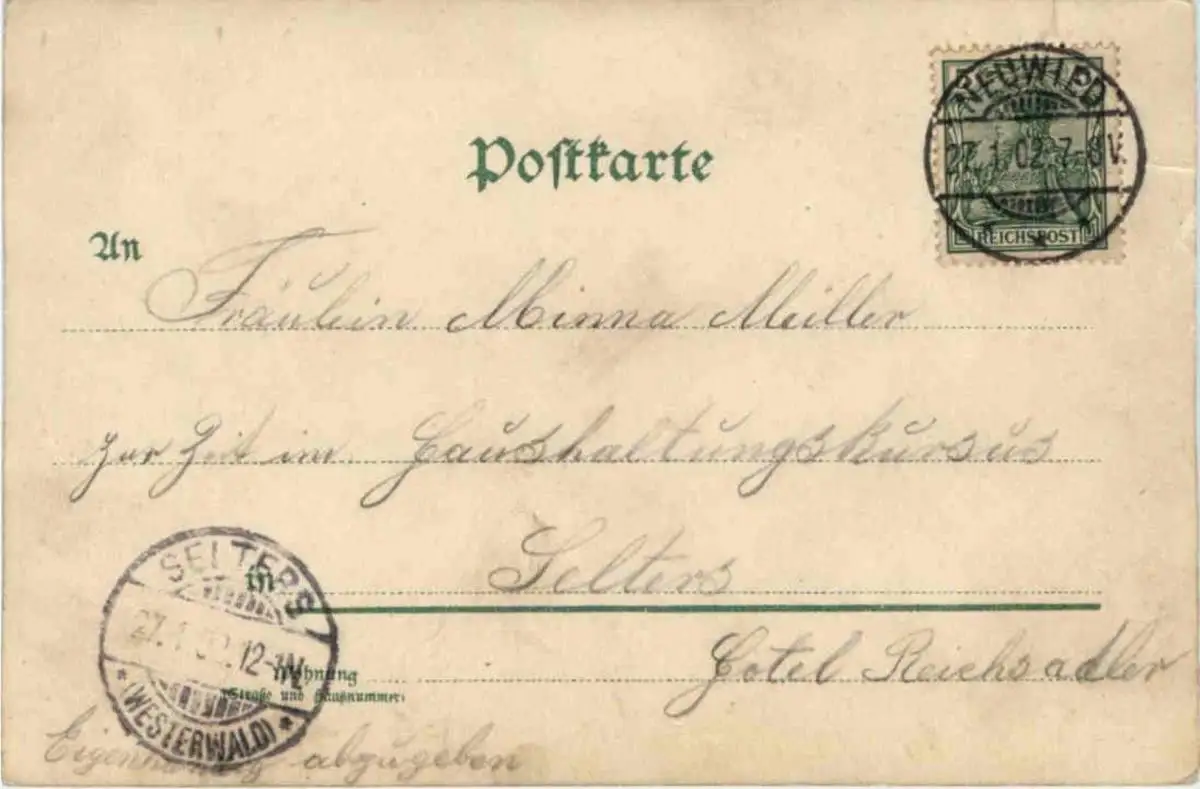 NEUWIED
27.1.02.7-8V.
REICHSPOST
Postkarte
An
Fräulein Minna Meiller
zur Zeit im Haushaltungskursus
in Selters
Wohnung Hotel Reichsadler
(Straße und Hausnummer)
SELTERS
27.1.02.12-1N.
(WESTERWALD)
Eigenhändig abzugeben